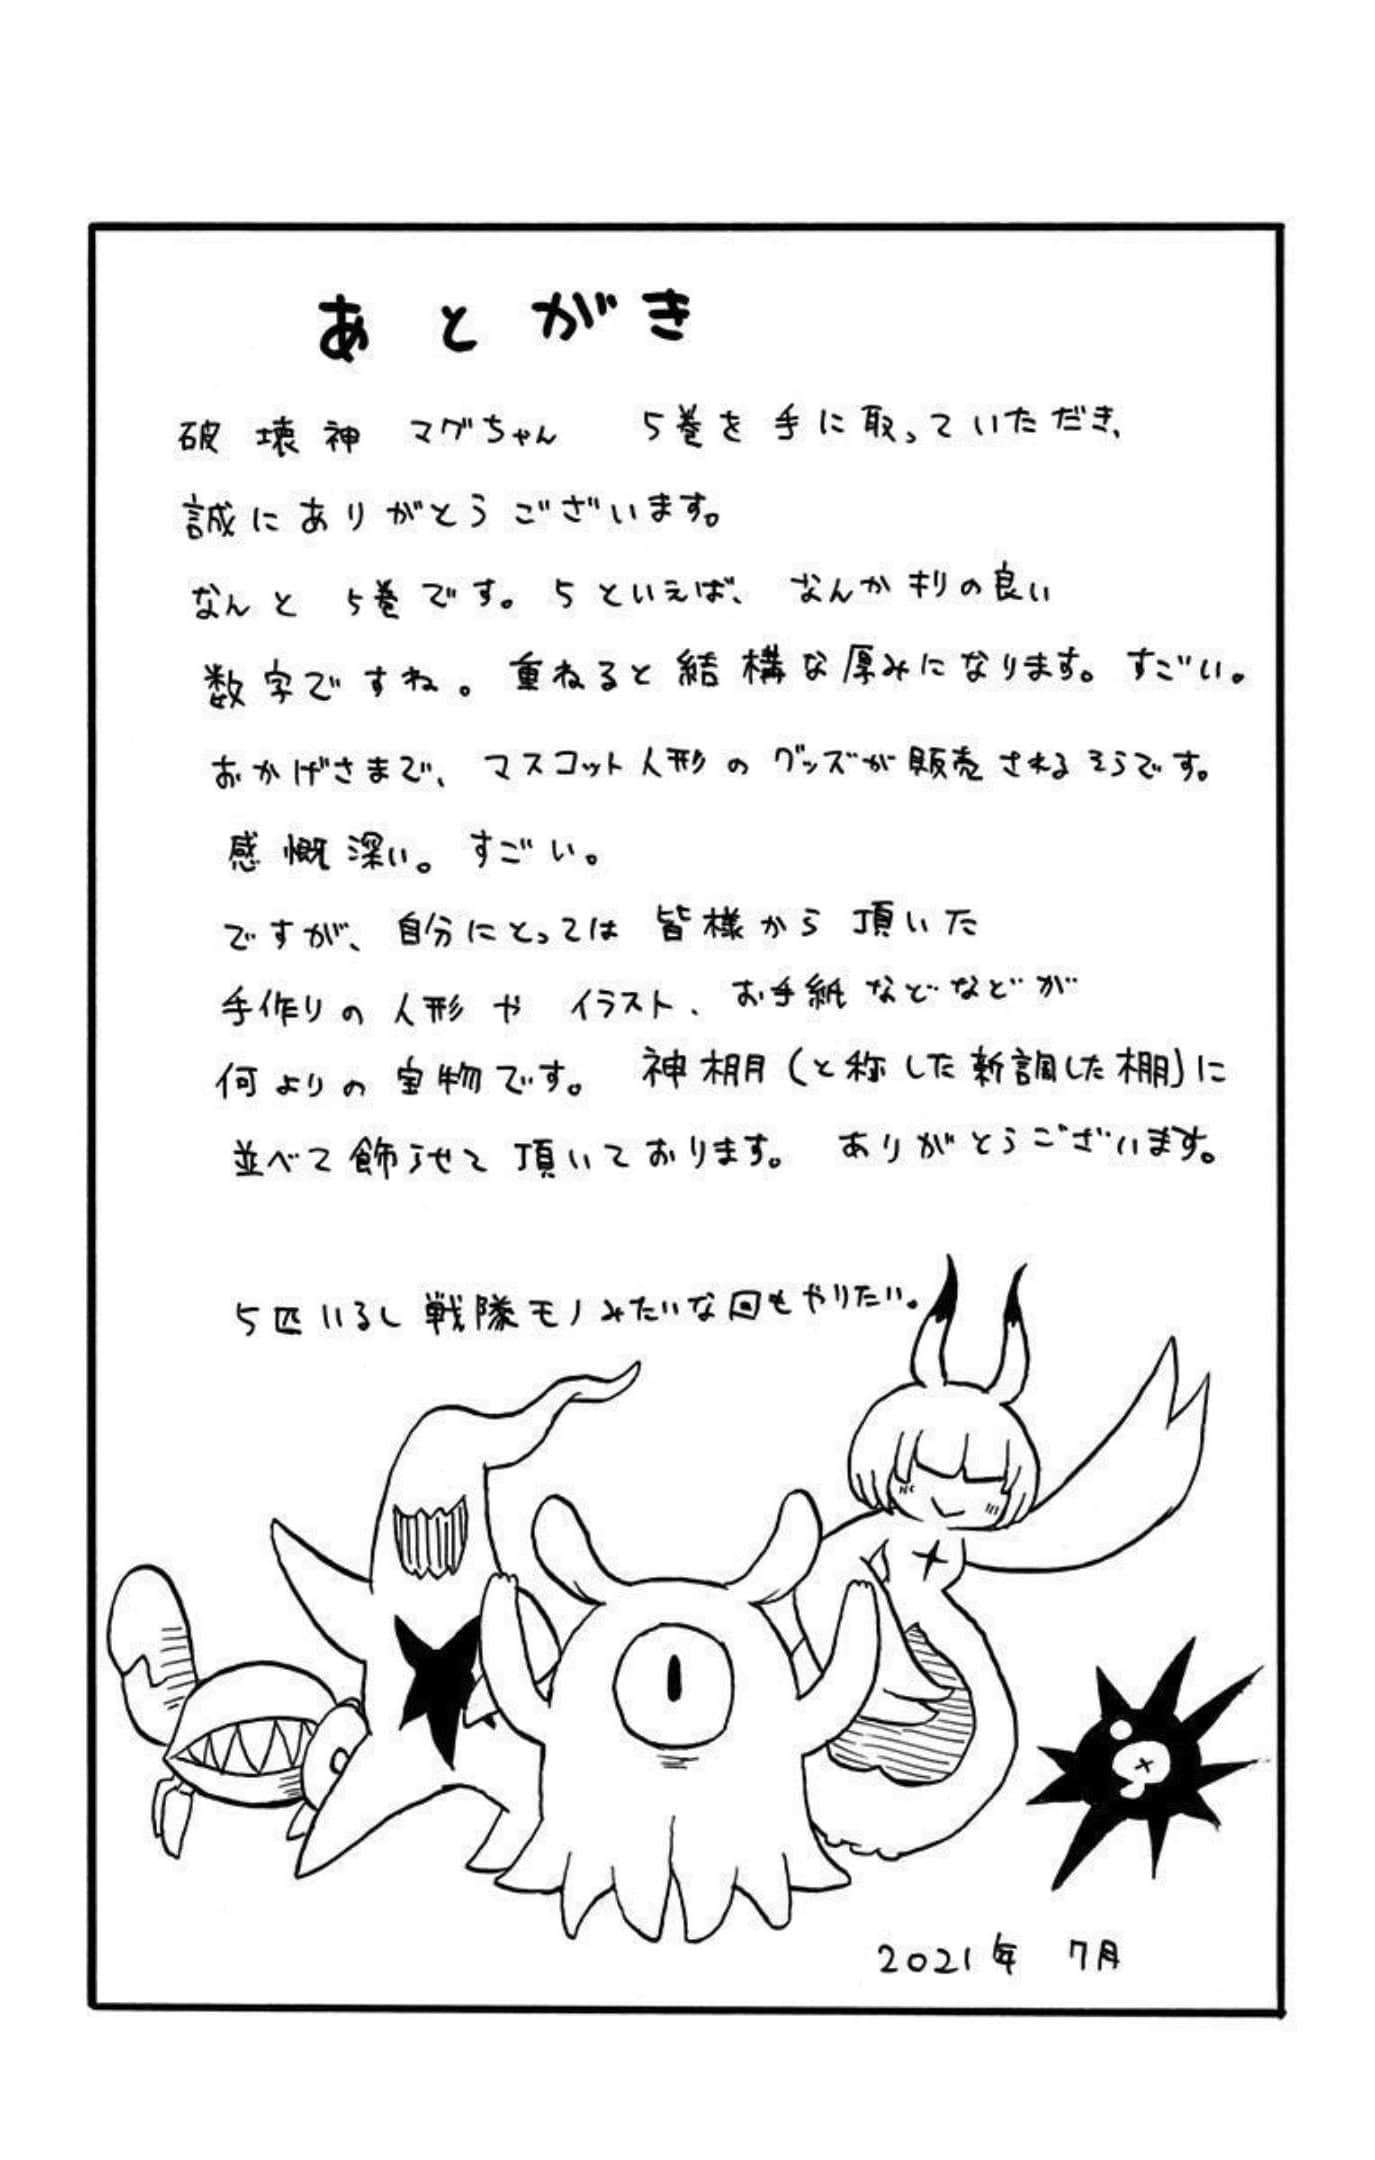 あとがき
破壊神 マグちゃん 5巻を手に取っていただき、
誠にありがとうございます。
なんと 5巻です。5といえば、なんかキリの良い
数字ですね。重ねると結構な厚みになります。すごい。
おかげさまで、マスコット人形のグッズが販売されるそうです。
感慨深い。すごい。
ですが、自分にとっては皆様から頂いた
手作りの人形や イラスト、お手紙などなどが
何よりの宝物です。 神棚(と称した新調した棚)に
並べて飾らせて頂いております。 ありがとうございます。
5匹いるし戦隊モノみたいな回もやりたい。
2021年 7月